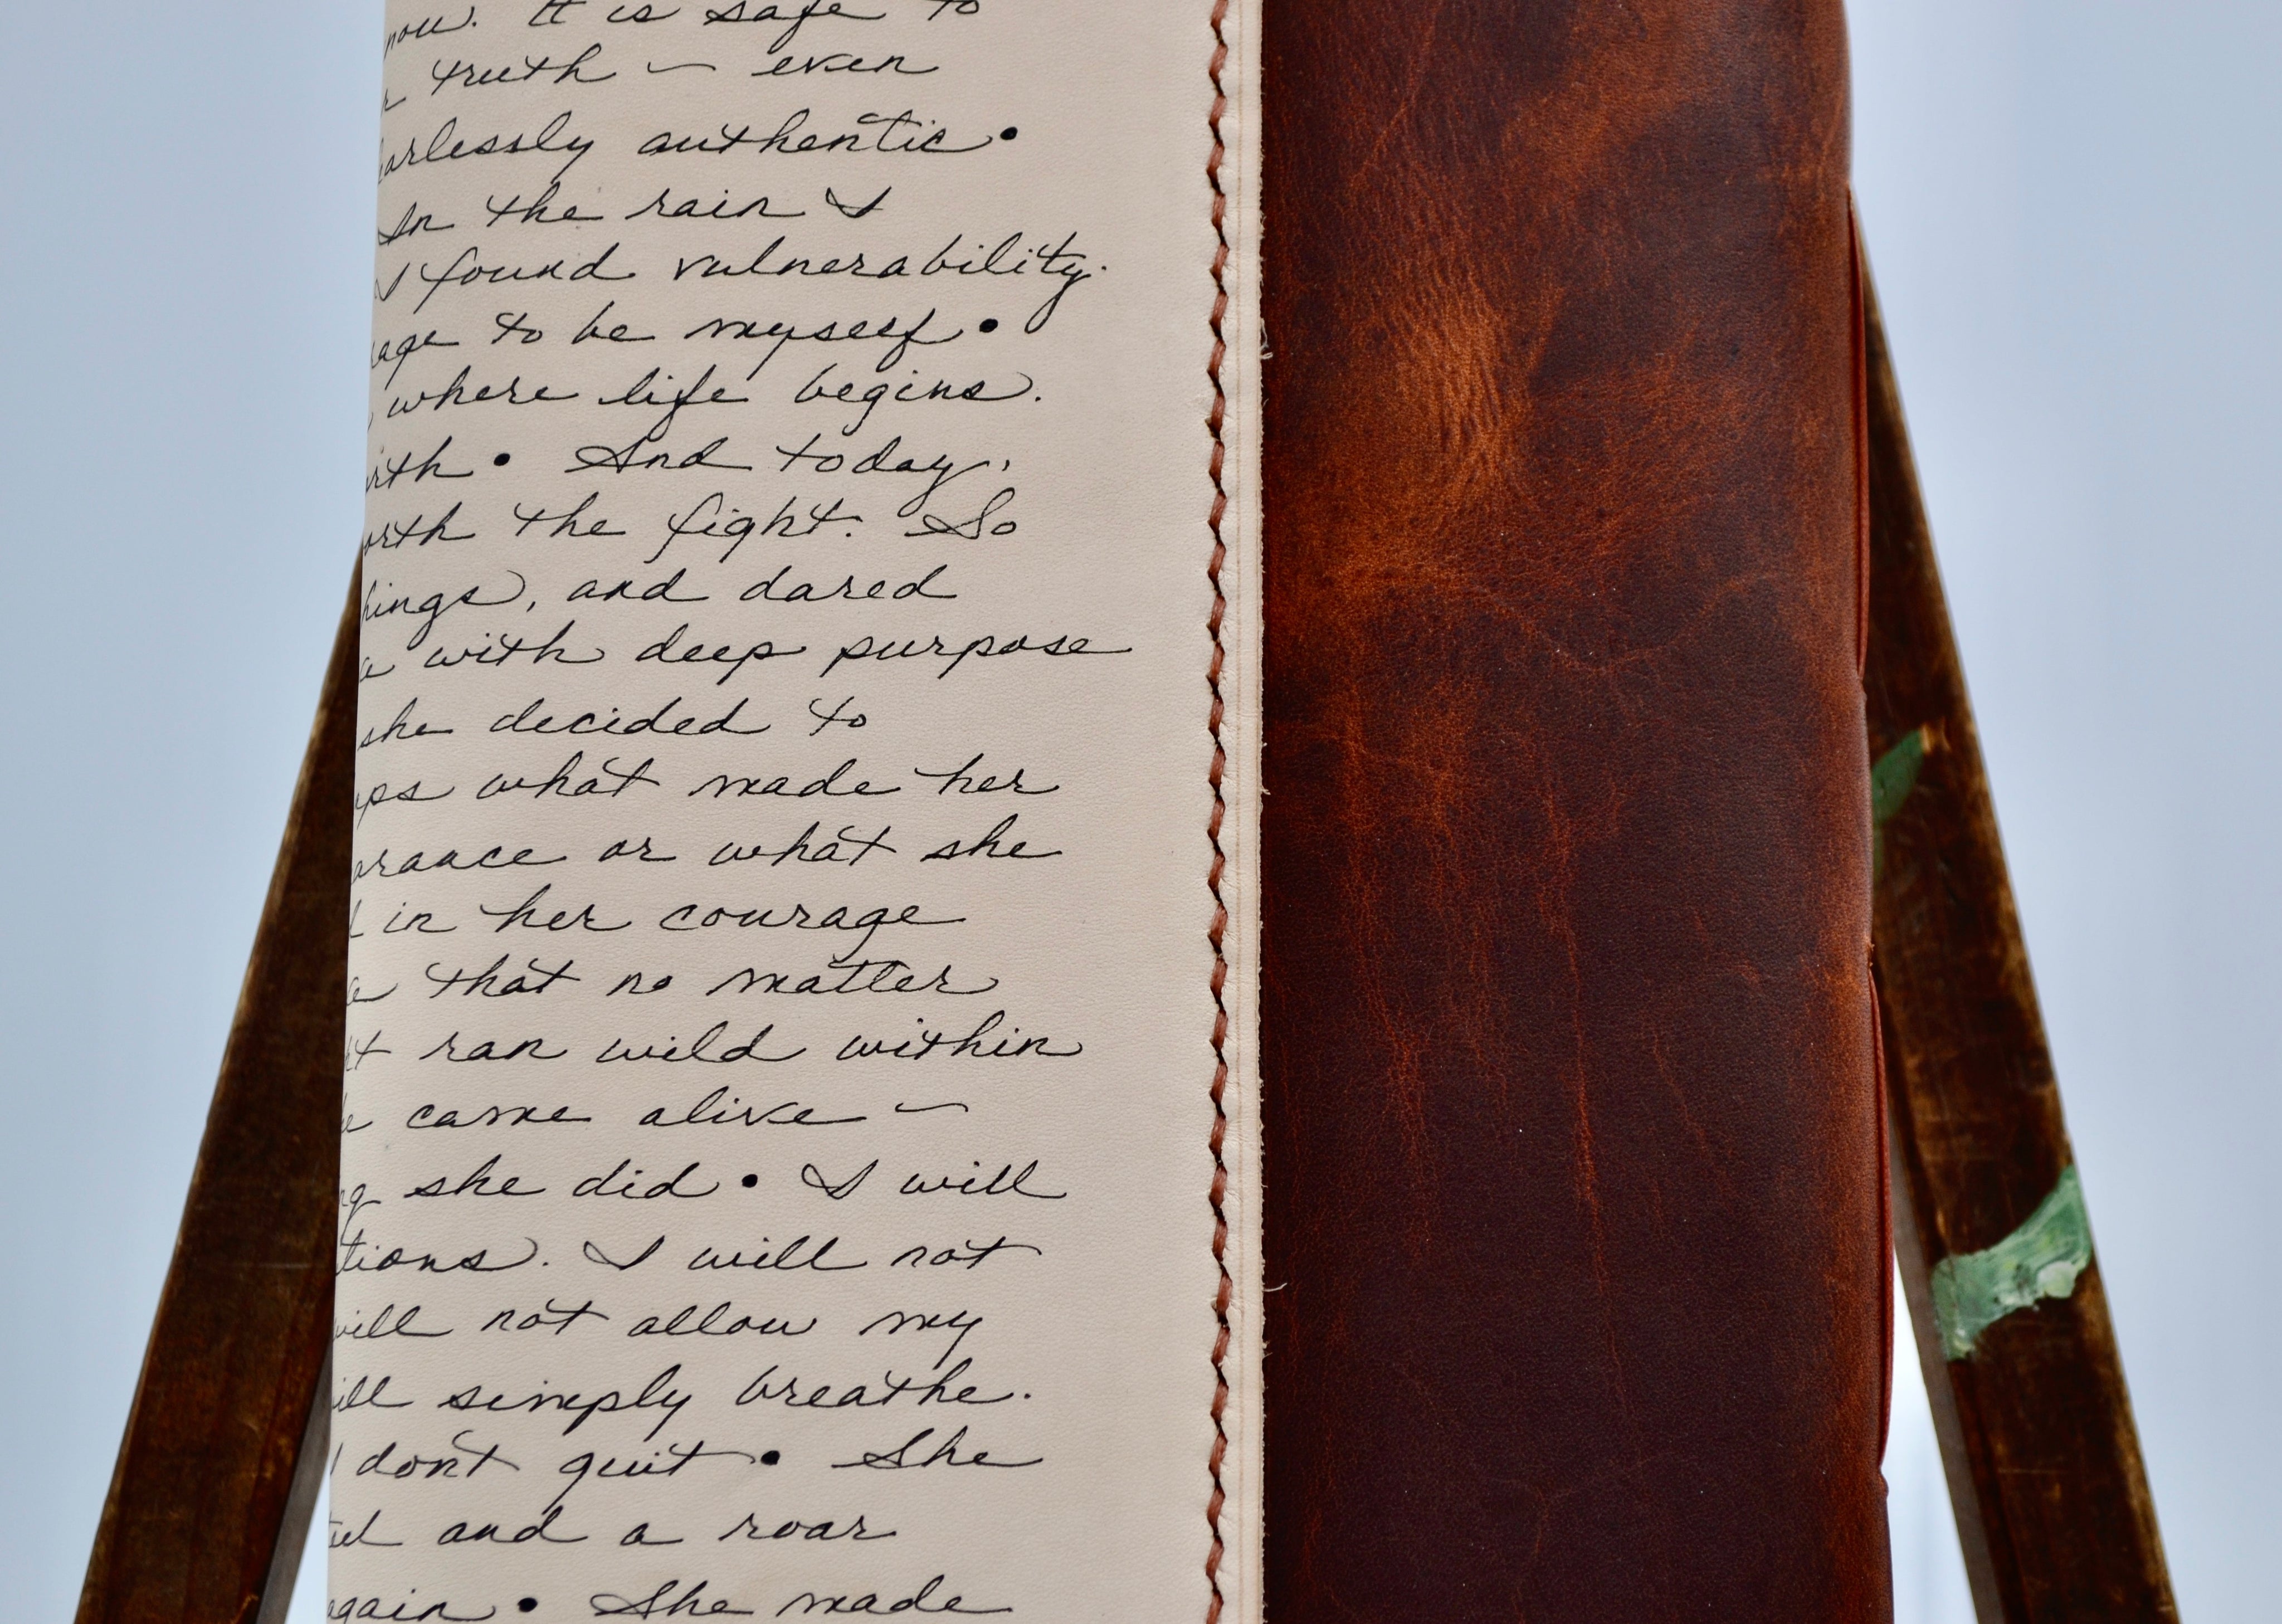 now. It is safe to
truth – even
earlessly authentic •
In the rain I
I found vulnerability.
age to be myself •
where life begins.
rth • And today,
orth the fight. So
hings, and dared
a with deep purpose
she decided to
ps what made her
arance or what she
in her courage
that no matter
t ran wild within
e came alive –
ng she did • I will
tions. I will not
will not allow my
ill simply breathe.
I don't quit • She
and a roar
again • She made